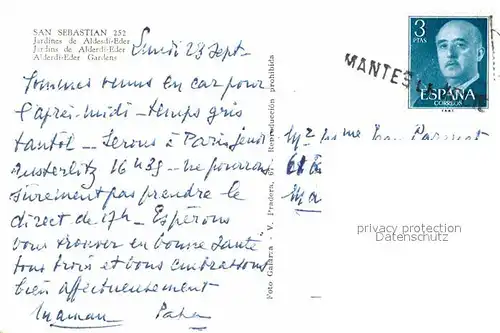 SAN SEBASTIAN 252
Jardines de Alderdi-Eder
Jardins de Alderdi-Eder
Alderdi-Eder Gardens
Lundi 28 Sept—
Sommes venus en car pour
l'après-midi — temps gris
tantôt — Serons à Paris jeudi
Austerlitz 16h35 — ne pourrons
sûrement pas prendre le
direct de 17h — Espérons
vous trouver en bonne santé
tous trois et vous embrassons
bien affectueusement
Maman Papa
Foto Galarza - V. Pradera, Reproducción prohibida
3
PTAS
ESPAÑA
CORREOS
MANTES LA
Mr et Mme Jean
privacy protection
Datenschutz